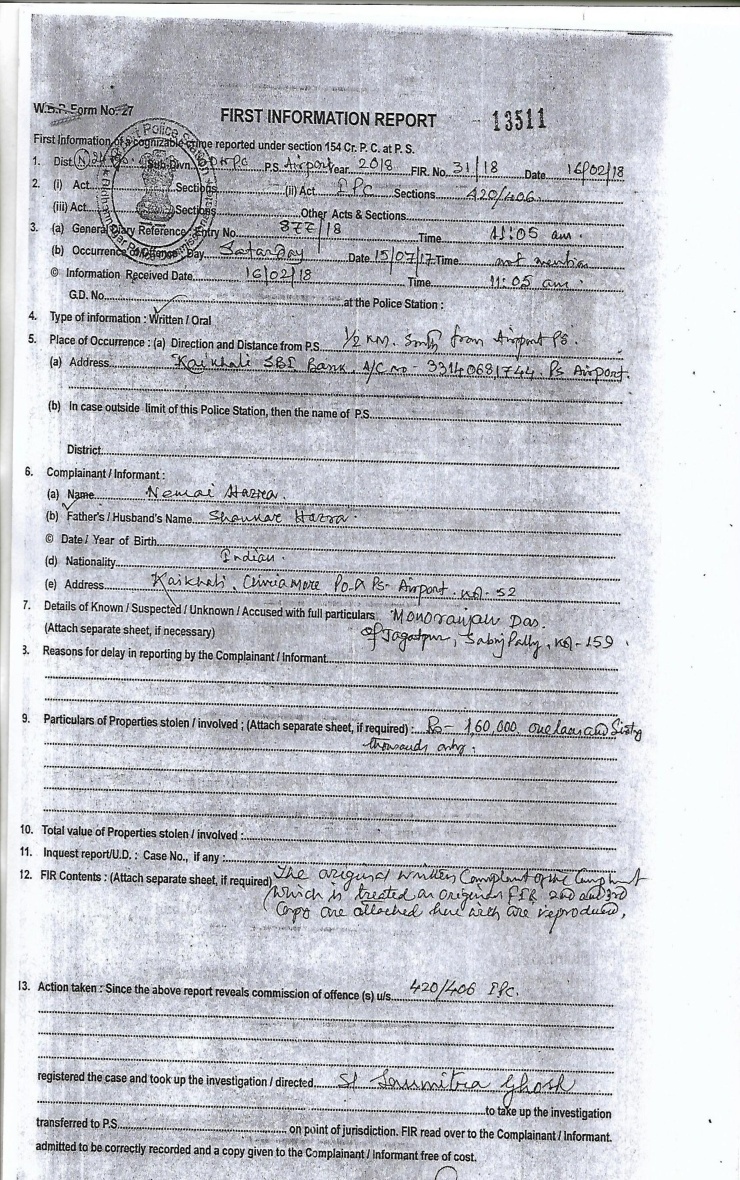 W.B.P. Form No. 27
FIRST INFORMATION REPORT - 13511
First Information of a cognizable crime reported under section 154 Cr. P. C. at P. S.
1. Dist. (N) 24 Pgs. Sub-Divn. P.S. Airport Year 2018 FIR. No. 31/18 Date 16/02/18
2. (i) Act Sections (ii) Act IPC Sections 420/406.
(iii) Act Sections Other Acts & Sections
3. (a) General Diary Reference: Entry No. 877/18 Time 11:05 am.
(b) Occurrence of Offence: Day Satarday Date 15/07/17 Time not mention
© Information Received Date 16/02/18 Time 11:05 am.
G.D. No. at the Police Station :
4. Type of information : Written / Oral
5. Place of Occurrence : (a) Direction and Distance from P.S. 1/2 KM. South from Airport PS.
(a) Address Kaikhali SBI Bank, A/C no - 33140681744. Ps Airport.
(b) In case outside limit of this Police Station, then the name of P.S.
District
6. Complainant / Informant :
(a) Name Nemai Hazra.
(b) Father's / Husband's Name Shankar Hazra.
© Date / Year of Birth
(d) Nationality Indian.
(e) Address Kaikhali, Chiriamore Po. & Ps- Airport. Kol- 52
7. Details of Known / Suspected / Unknown / Accused with full particulars Monoranjan Das.
(Attach separate sheet, if necessary) Of Jagatpur, Sabuj Pally, Kol - 159
3. Reasons for delay in reporting by the Complainant / Informant
9. Particulars of Properties stolen / involved ; (Attach separate sheet, if required) : Rs- 1,60,000. one laac and Sixty
thousands only.
10. Total value of Properties stolen / involved :
11. Inquest report/U.D. : Case No., if any :
12. FIR Contents : (Attach separate sheet, if required) The original written Complaint of the Complainant
which is treated as original FIR 2nd and 3rd
Copy are attached here with are reproduced.
13. Action taken : Since the above report reveals commission of offence (s) u/s 420/406 IPC.
registered the case and took up the investigation / directed SI Soumitra Ghosh
to take up the investigation
transferred to P.S. on point of jurisdiction. FIR read over to the Complainant / Informant.
admitted to be correctly recorded and a copy given to the Complainant / Informant free of cost.